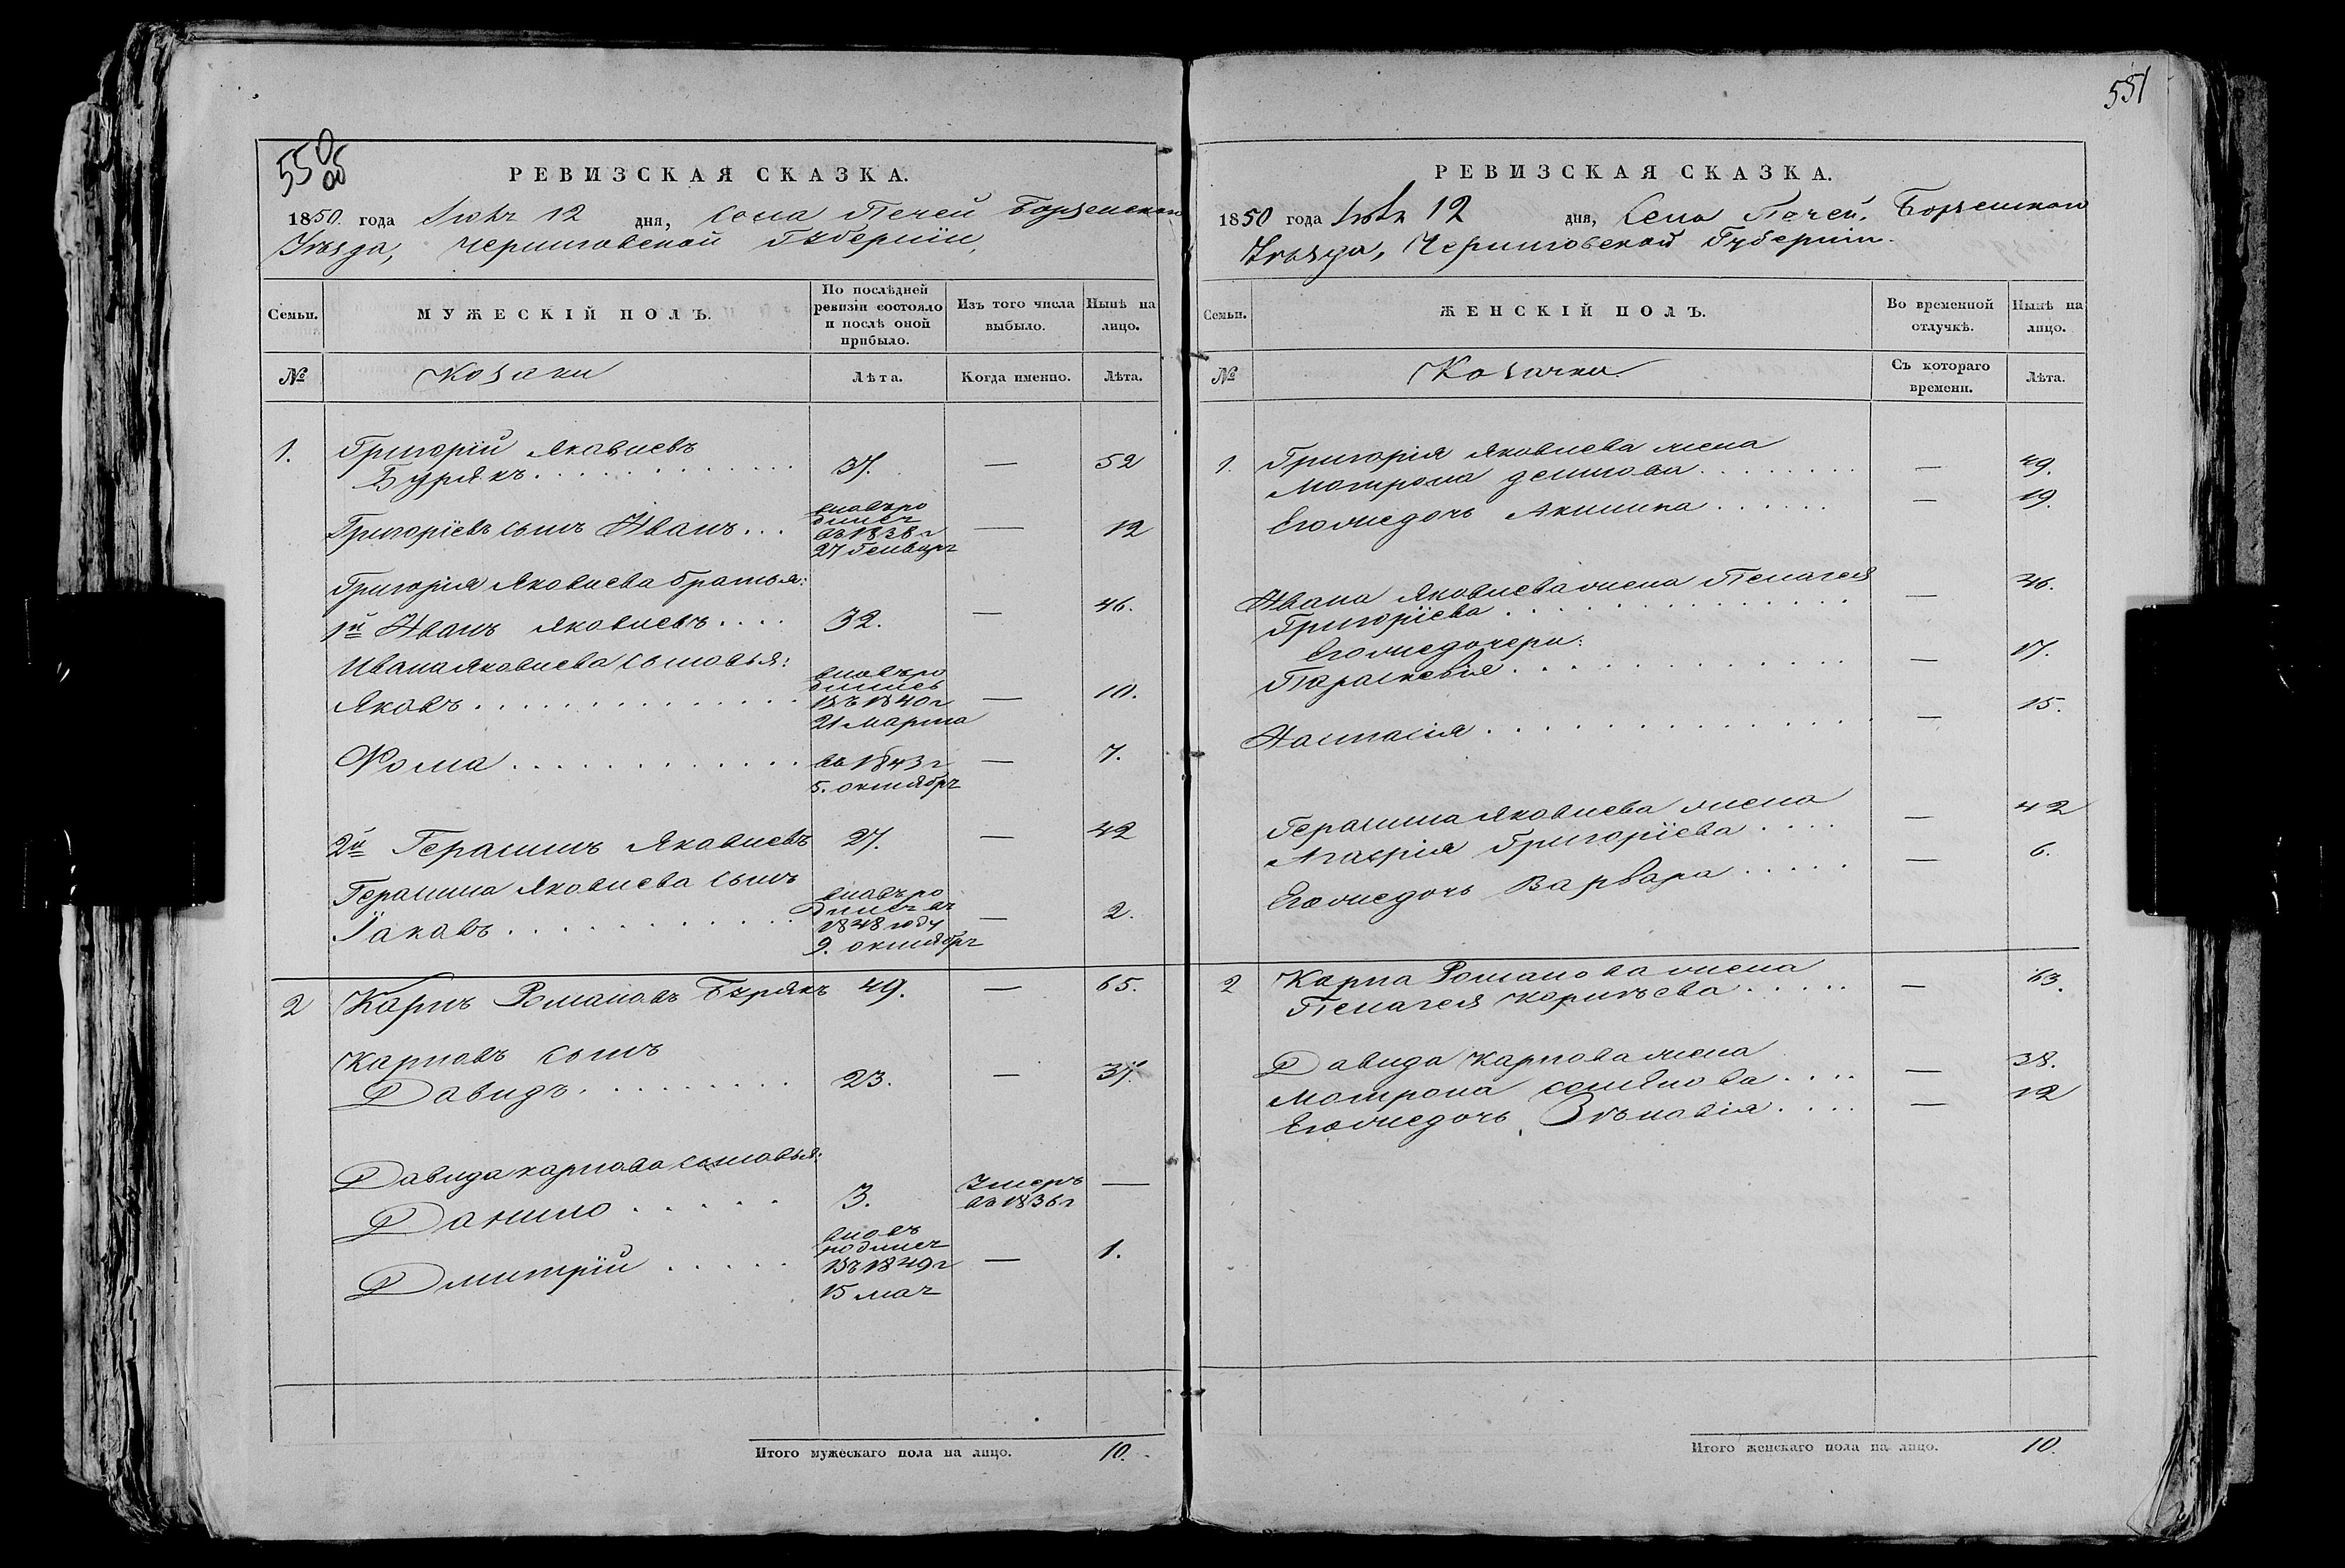 550
об
РЕВИЗСКАЯ СКАЗКА.
1850. года 12 дня, села Печей Борзенскаго
Уѣзда, Черниговской Губерніи,
Семьи.
МУЖЕСКІЙ ПОЛЪ.
По послѣдней ревизіи состояло и послѣ оной прибыло.
Изъ того числа выбыло.
Нынѣ на лицо.
№
Козаки
Лѣта.
Когда именно.
Лѣта.
1. Григорій Яковлевъ
Бурякъ. 37. — 52
Григоріевъ сынъ Иванъ... вновь родился въ 1838 г 27 Генваря — 12
Григорія Яковлева братья:
1й Иванъ Яковлевъ.... 32. — 46.
Ивана Яковлева сыновья:
Яковъ. вновь родились въ 1840 г 21 марта — 10.
Фома. въ 1843 г 5. октября — 7.
2й Герасимъ Яковлевъ 27. — 42
Герасима Яковлева сынъ
Іаковъ. вновь родился въ 1848 году 9. октября — 2.
2 Карпъ Романовъ Бурякъ 49. — 65.
Карповъ сынъ
Давидъ. 23. — 37.
Давида карпова сыновья:
Данило 3. Умеръ въ 1836 г —
Дмитрій вновь родился въ 1849 г 15 мая — 1.
Итого мужескаго пола на лицо. 10.
551
РЕВИЗСКАЯ СКАЗКА.
1850 года 12 дня, Села Печей. Борзенскаго
Уѣзда, Черниговской Губерніи.
Семьи.
ЖЕНСКІЙ ПОЛЪ.
Во временной отлучкѣ.
Нынѣ на лицо.
№
Козачки
Съ котораго времени.
Лѣта.
1. Григорія Яковлева жена
Мотрона демкова. — 49.
Егожедочь Акилина — 19.
Ивана Яковлева жена Пелагея
Григоріева — 36.
Егожедочери:
Параскевія. — 17.
Настасія — 15.
Герасима Яковлева жена
Агафія Григоріева — 42
Егожедочь Варвара — 6.
2 Карпа Романова жена
Пелагея корнѣева — 63.
Давида карпова жена
Мотрона семенова — 38.
Егожедочь Зѣновія. — 12
Итого женскаго пола на лицо. 10.